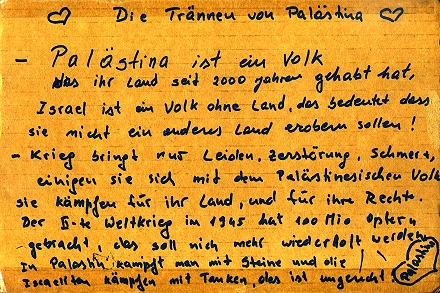 Die Trännen von Palästina
- Palästina ist ein Volk
das ihr Land seit 2000 jahren gehabt hat,
Israel ist ein Volk ohne Land, das bedeutet dass
sie nicht ein anderes Land erobern sollen!
- Krieg bringt nur Leiden, Zerstörung, Schmerz,
einigen sie sich mit dem Palästinesischen Volk
sie kämpfen für ihr Land, und für ihre Rechte.
Der II-te Weltkrieg in 1945 hat 100 Mio Optern
gebracht, das soll nich mehr wiederholt werden
In Palästin kämpft man mit Steine und die
Israeliten kämpfen mit Tanken, das ist ungerecht!
Palästina